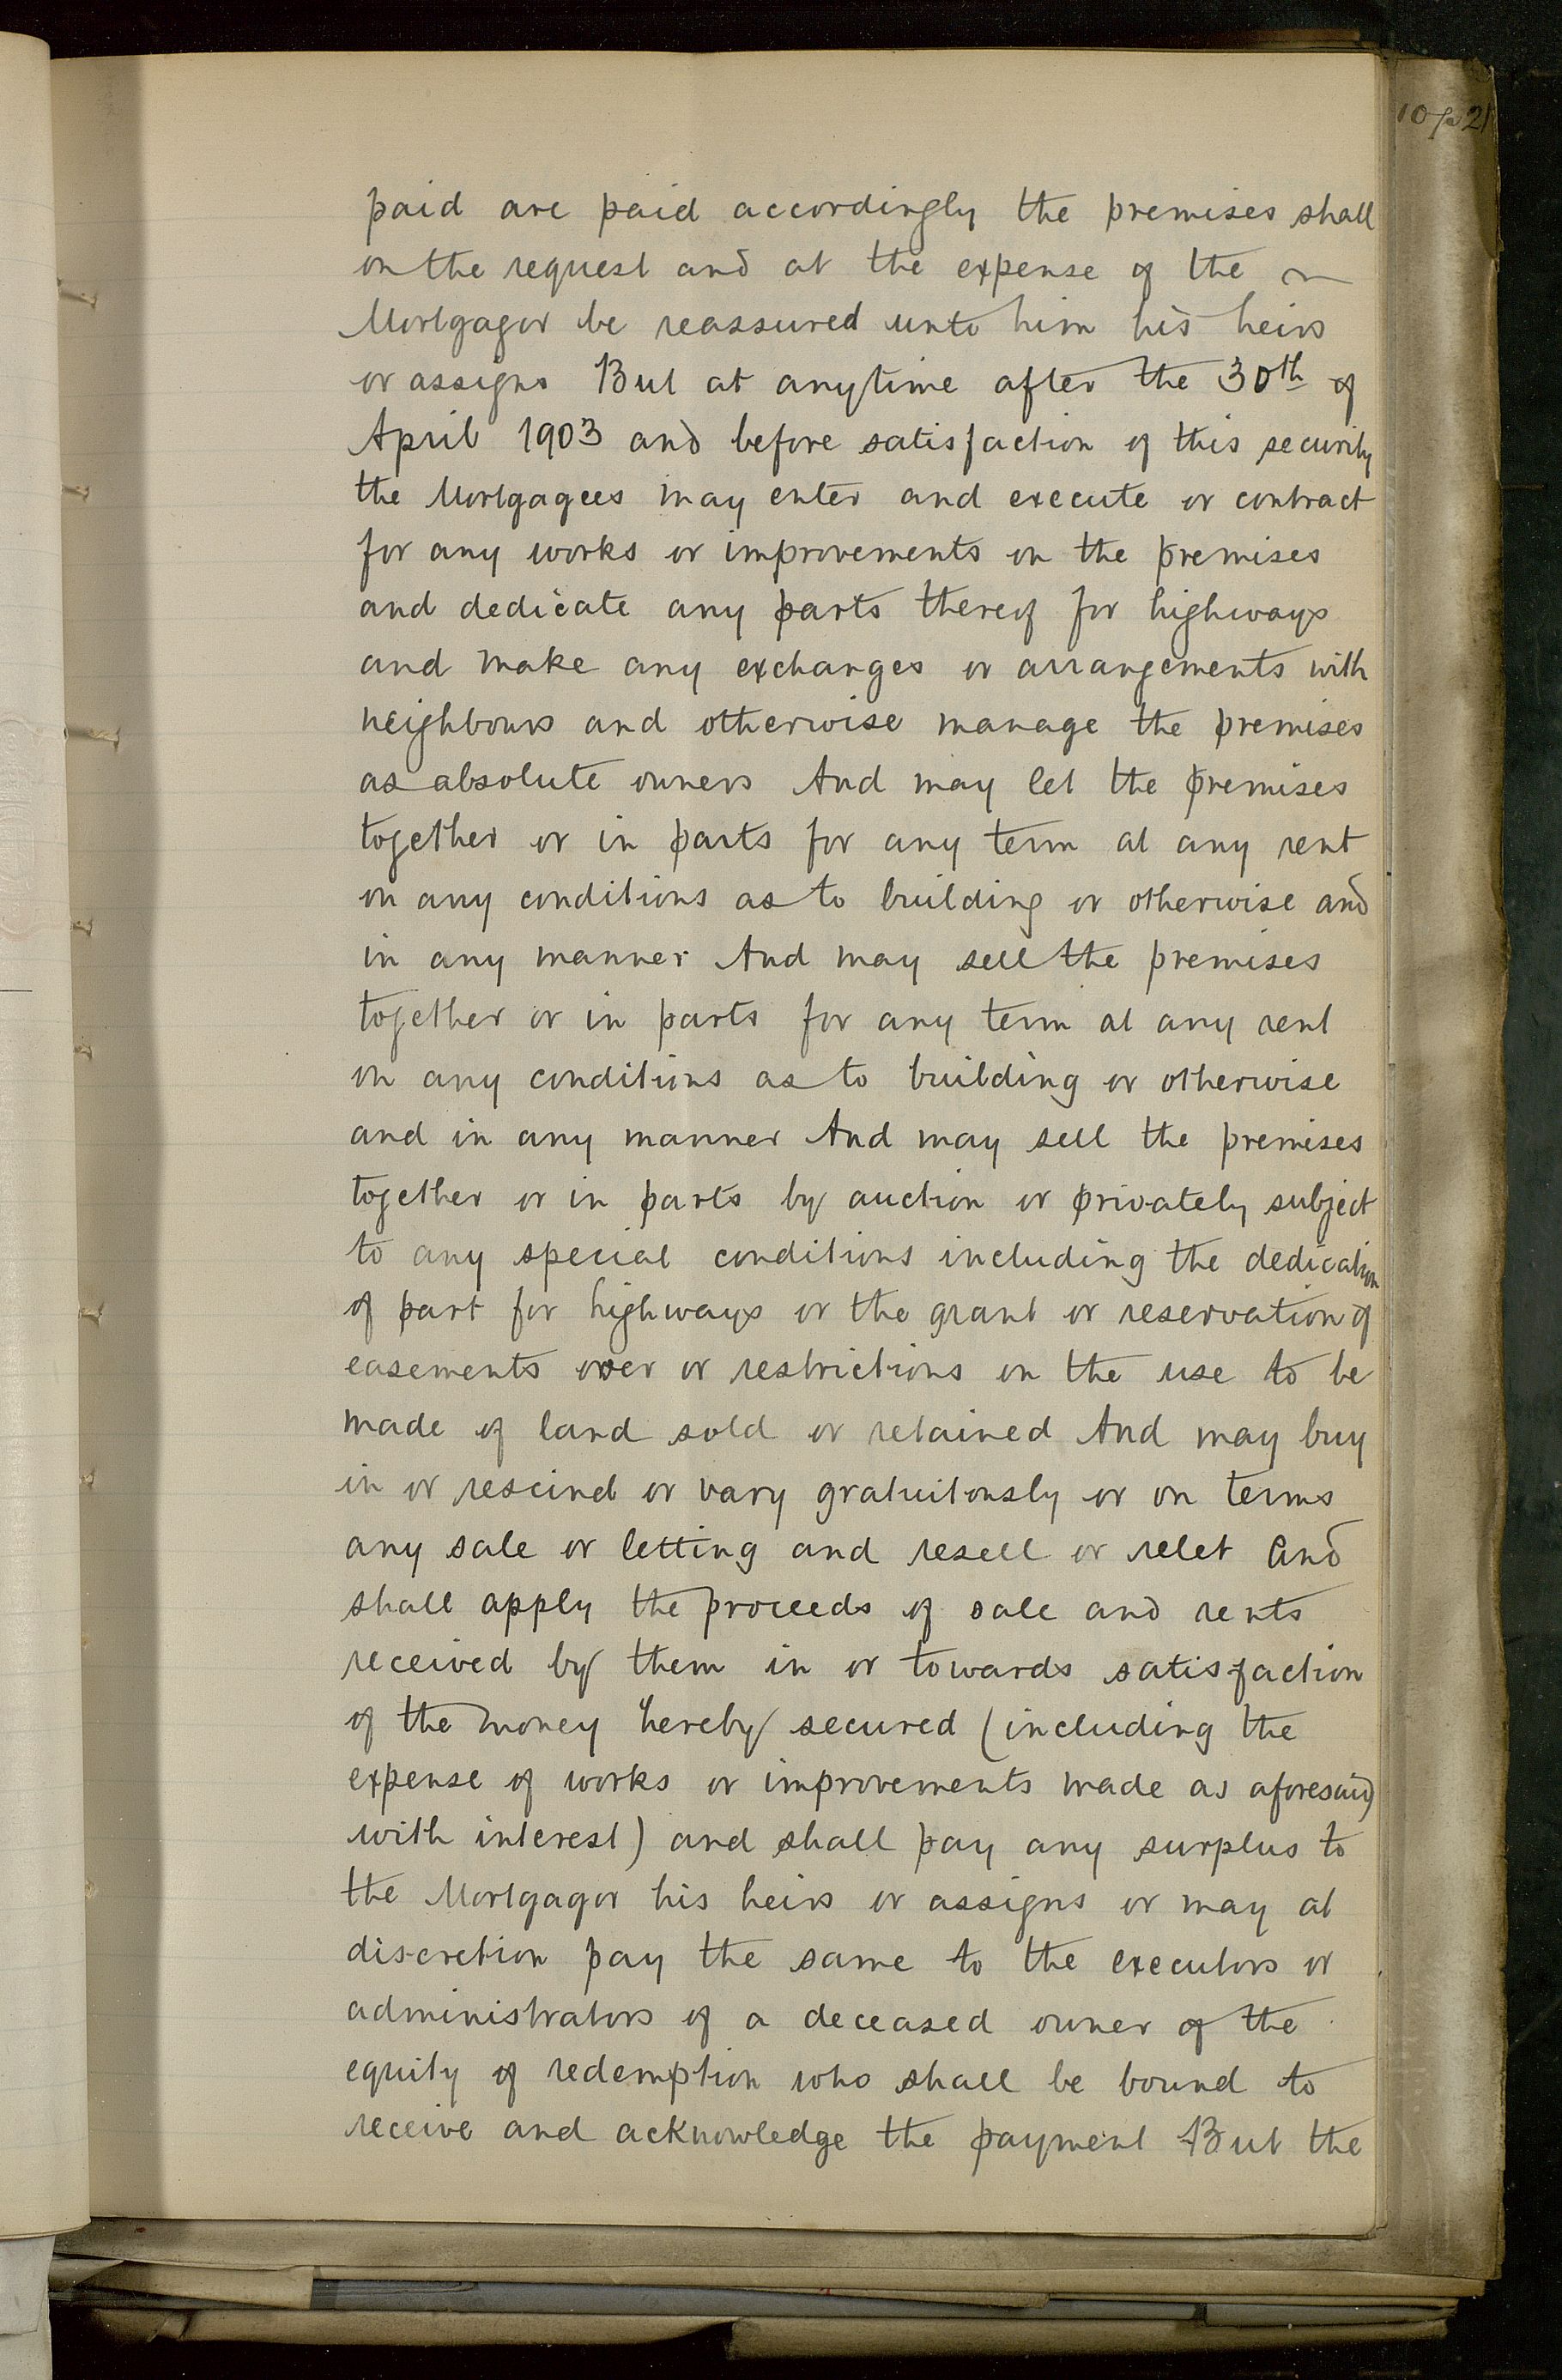 paid are paid accordingly the premises shall
on the request and at the expense of the
Mortgagor be reassured unto him his heirs
or assigns But at anytime after the 30th of
April 1903 and before satisfaction of this security
the Mortgagees may enter and execute or contract
for any works or improvements on the premises
and dedicate any parts thereof for highways
and make any exchanges or arrangements with
neighbours and otherwise manage the premises
as absolute owners And may let the premises
together or in parts for any term at any rent
on any conditions as to building or otherwise and
in any manner And may sell the premises
together or in parts for any term at any rent
on any conditions as to building or otherwise
and in any manner And may sell the premises
together or in parts by auction or privately subject
to any special conditions including the dedication
of part for highways or the grant or reservation of
easements over or restrictions on the use to be
made of land sold or retained And may buy
in or rescind or vary gratuitously or on terms
any sale or letting and resell or relet And
shall apply the proceeds of sale and rents
received by them in or towards satisfaction
of the money hereby secured (including the
expense of works or improvements made as aforesaid
with interest) and shall pay any surplus to
the Mortgagor his heirs or assigns or may at
discretion pay the same to the executors or
administrators of a deceased owner of the
equity of redemption who shall be bound to
receive and acknowledge the payment But the